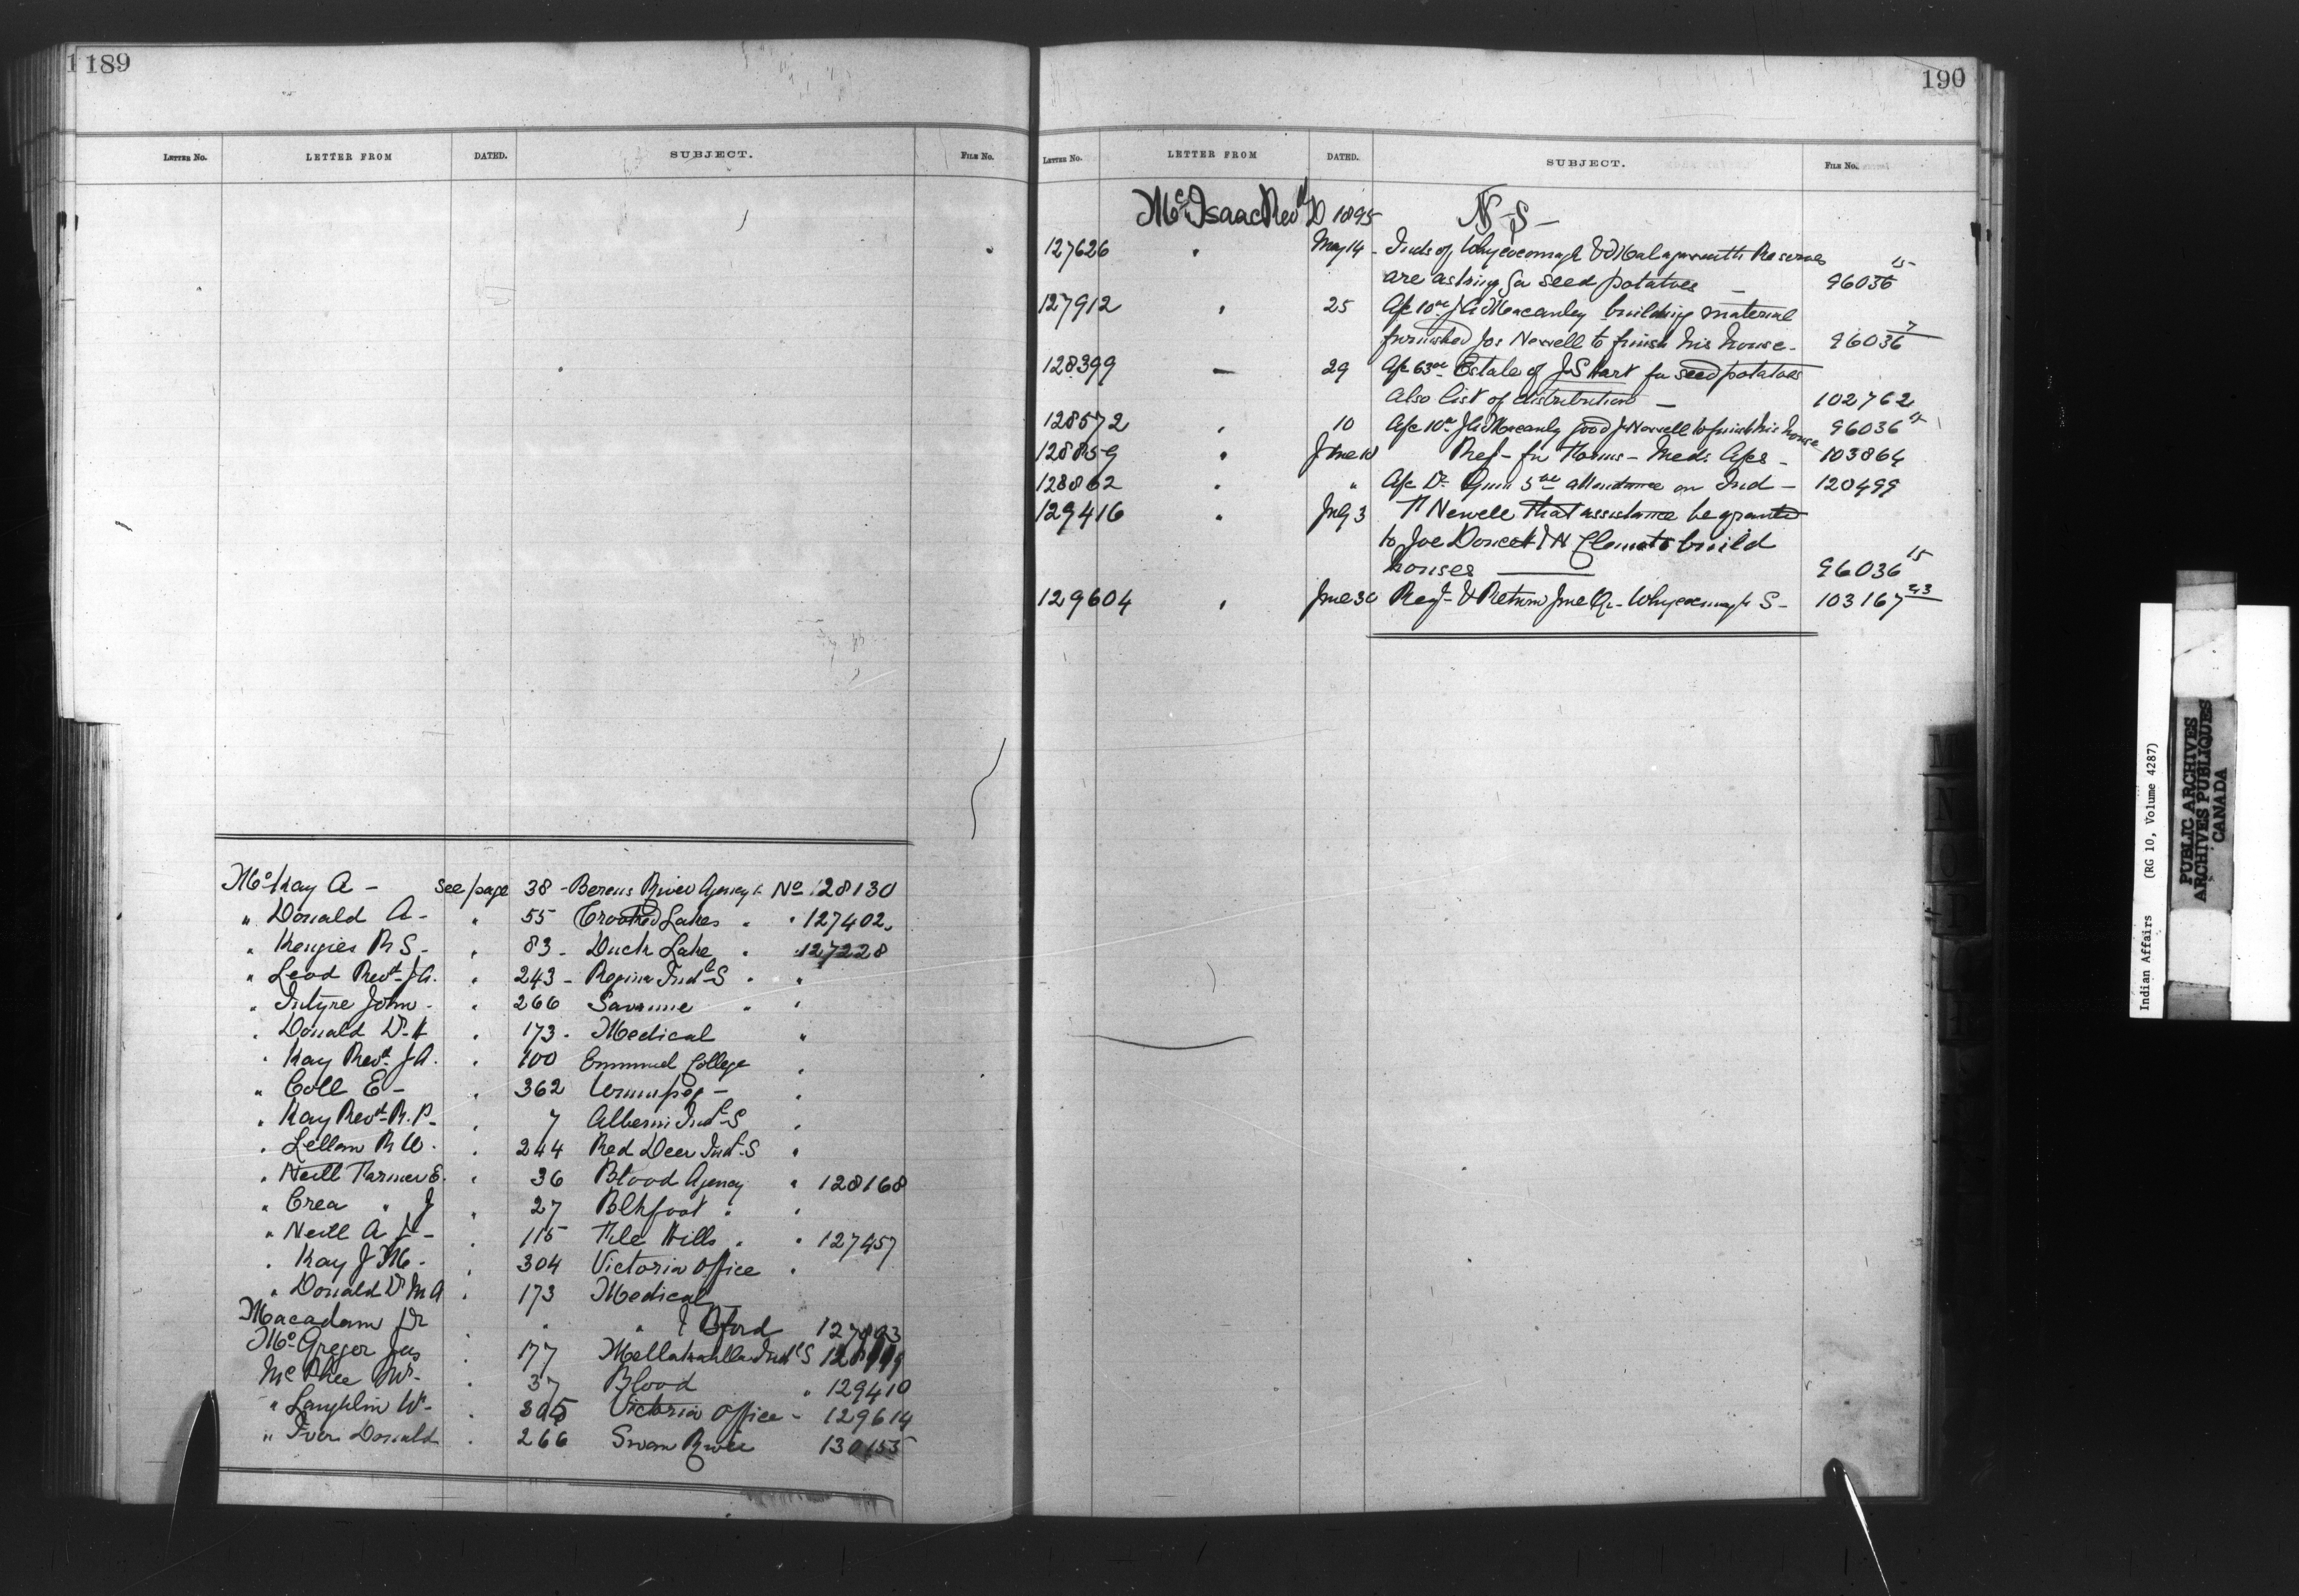 189
LETTER NO. LETTER FROM DATED. SUBJECT. FILE No.
McKay A - see page 38 - Berens River Agency No 128130
" Donald A - " 55 Crooked Lakes " " 127402
" Kenzies R S - " 83 - Duck Lake " " 127228
" Leod Revd J A. " 243 - Regina Indl S " "
" Intyre John - " 266 Savanne " "
" Donald Dr H " 173 - Medical "
" Kay Revd J A. " 100 Emmanuel College "
" Coll E - " 362 Winnipeg - "
" Kay Revd R. P. " 7 Alberni Indl S "
" Lellan R W. " 244 Red Deer Indl S "
" Neill Farmer E. " 36 Blood Agency " 128168
" Crea " J " 27 Blkfoot " "
" Neill A J - " 115 File Hills " " 127457
" Kay J M - " 304 Victoria Office "
" Donald Dr M A " 173 Medical
Macadam Dr " " Bford
McGregor Jas " 177 Metlakahtla Indl S
McPhee " 37 Blood " 129410
" Laughlin W - " 305 Victoria Office - 129614
" Iver Donald " 266 Swan River 130155
190
LETTER NO. LETTER FROM DATED. SUBJECT. FILE No.
McIsaac Revd D 1895 N - S -
127626 " May 14 - Inds of Whycocomagh & Malagawatch Reserves
are asking for seed potatoes - 96036 15
127912 " 25 A/c 10.00 J A Macauley building material
furnished Jos Newell to finish his house - 96036 7
128399 - 29 A/c 63.00 Estate of J S Hart for seed potatoes
Also list of distribution - 102762
128572 " 10 A/c 10.00 J A Macauly Jos Newell to finish his house 96036 15
128859 " June 10 Req - for Forms - Meds A/cs - 103864
128862 " " A/c Dr 5.00 attendance on Ind - 120499
129416 " July 3 N Newell that assistance be granted
to Joe Doucet & N to build
houses 96036 15
129604 " June 30 & Return June Qr - Whycocomagh S - 103167 23
Indian Affairs (RG 10, Volume 4287)
PUBLIC ARCHIVES
ARCHIVES PUBLIQUES
CANADA
M
N